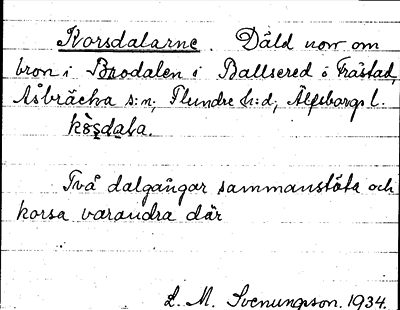 Korsdalarne. Däld norr om
bron i Brodalen i Ballsered ö Fråstad,
Åsbräcka s:n, Flundre h:d, Älfsborgs l.
kòṣdaḷa.
Två dalgångar sammanstöta och
korsa varandra där
L. M. Svenungsson. 1934.